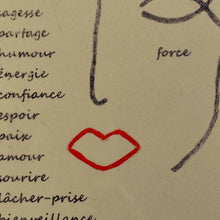 sagesse
partage
humour
énergie
confiance
espoir
paix
amour
sourire
lâcher-prise
bienveillance
force